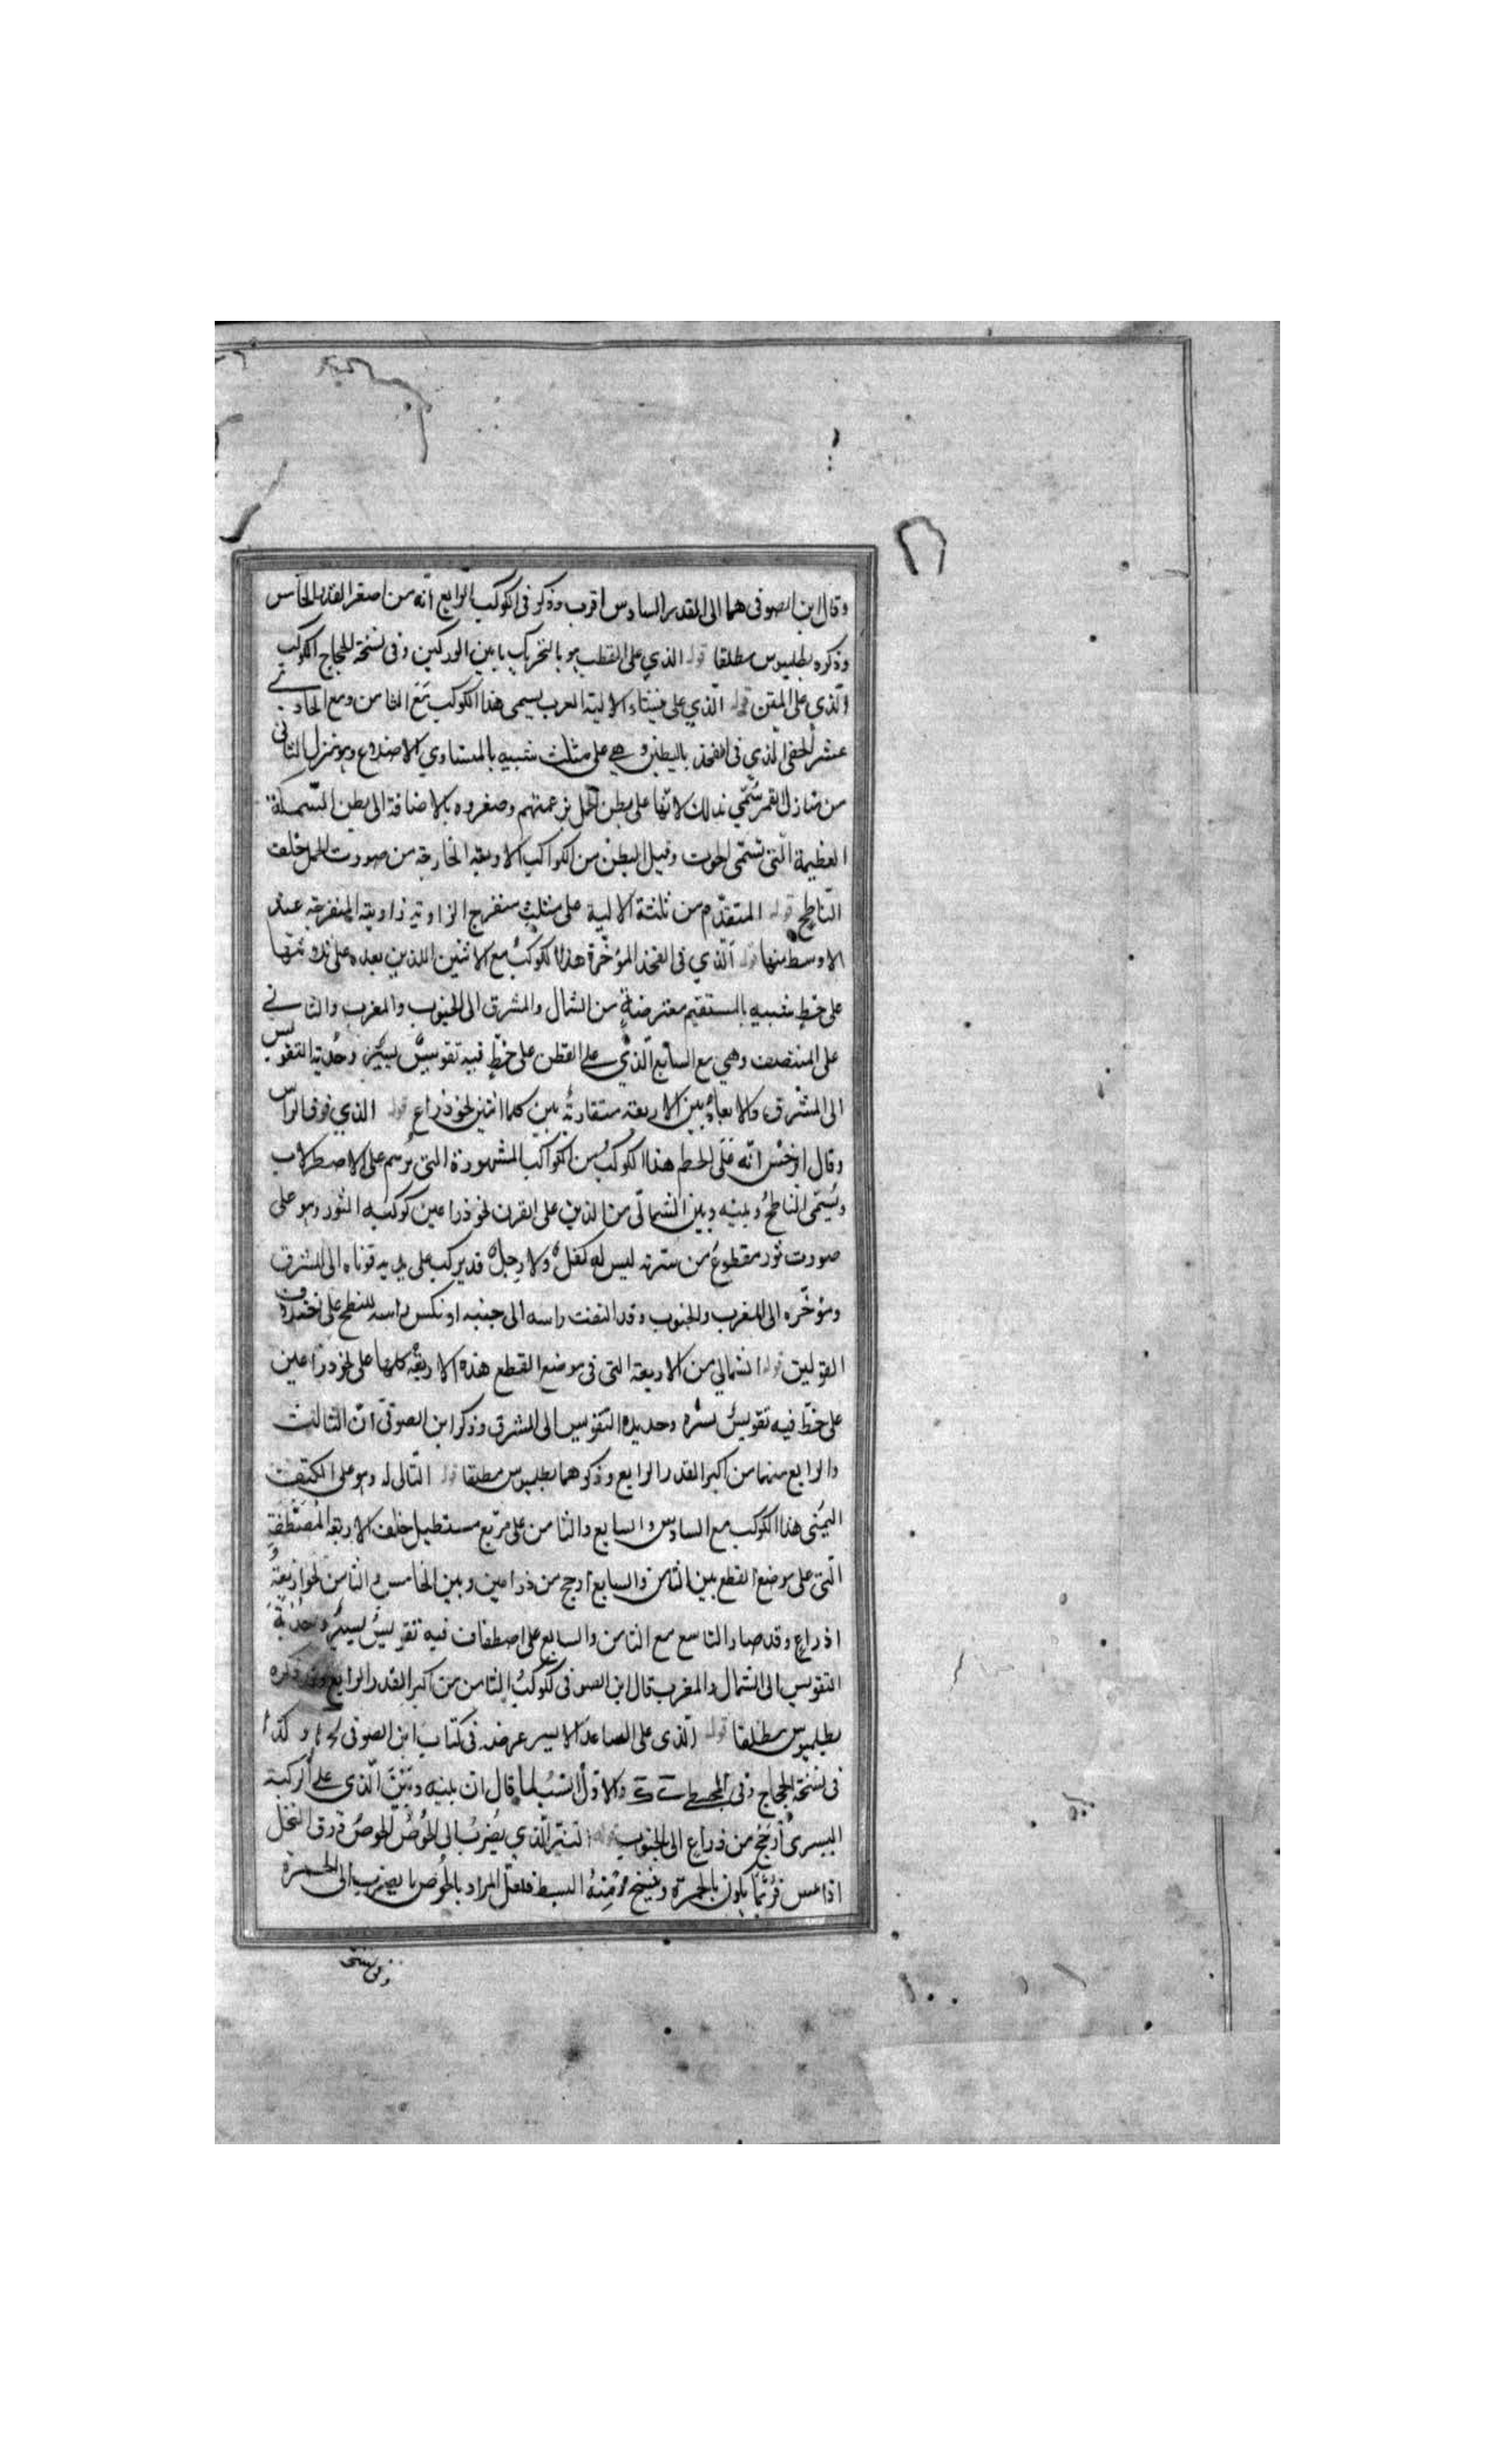 وقال ابن الصوفى هما الى القدر السادس اقرب وذكر فى الكوكب الرابع انّه من اصغر القدر الخامس
وذكره بطليوس مطلقا قوله الذي على القطب هو بالتحريك ما بين الوركين وفى نسخة الحجاج الكوكب
الّذي على المتن قوله الّذي على منشاء الالية العرب يسمى هذا الكوكب مَعَ الثامن ومع الحادي
عشر الخفى الّذي فى الفخذ بالبطين وهي على مثلث شبيه بالمتساوي الاضلاع وهو المنزل الثانى
من منازل القمر سُمّي بذلك لانّها على بطن الحمل بزعمتهم وصغروه بالاضافة الى بطن السّمكة
العظيمة الّتى تسمّى الحوت وقيل البطن من الكواكب الاربعة الخارجة من صورت الحمل خلف
النّاطح قوله المتقدّم من ثلثة الالية على مثلث منفرج الزاوية زاويته المنفرجة عند
الاوسط منها قوله الّذي فى الفخذ المؤخّرة هذا الكوكب مع الاثنين اللذين بعده على ثلاثتها
على خط شبيه بالمستقيم معترضة من الشمال والمشرق الى الجنوب والمغرب والثاني
على المنتصف وهي مع السابع الّذي على القطن على خطٍّ فيه تقويسٌ يسيرٌ وحُدبة التقويس
الى المشرق والابعاد بين الاربعة متقاربة بين كلما اثنين نحو ذراع قوله الذي فوق الراس
وقال ابرخس انّه على الخطم هذا الكوكبُ من الكواكب المشهورة التى تُرسم على الاصطرلاب
ويُسمّى النّاطحُ وبينه وبين الشمالى من الذين على القرن نحو ذراعين كوكبه الثور وهو على
صورت ثور مقطوع من سترته ليس له كفل ولا رجل قد يركب على يديه قوناه الى المشرق
ومؤخّره الى المغرب والجنوب وقد التفت راسه الى جنبه او نكس راسه للنطح على اختلاف
القولين قوله الشمالي من الاربعة التى فى موضع القطع هذه الاربعة كلها على نحو ذراعين
على خطّ فيه تقويسٌ يسير وحديده التقويس الى المشرق وذكر ابن الصوفىّ انّ الثالث
والرابع منهما من اكبر القدر الرابع وذكرهما بطليوس مطلقا قوله التالى له وهو على الكتف
اليمنى هذا الكوكب مع السادس والسابع والثامن على مربّع مستطيل خلف الاربعة المُصْطَفّةِ
الّتى على موضع القطع بين الثامن والسابع ارجح من ذراعين وبين الخامس والثامن نحو اربعةُ
اذراع وقد صار التاسع مع الثامن والسابع على اصطفاف فيه تقويسٌ يسيرٌ وحُدبةُ
التقويس الى الشمال والمغرب قال ابن الصوفى كوكبُ الثامن من اكبر القدر الرابع وذكره
بطليموس مطلقا قوله الّذى على الصاعد الايسر عرضه فى كتاب ابن الصوفى وكذا
فى نسخة الحجاج وفى المجسطى والاوّل انسب لما قال ان بينه وبَيْنَ الّذى على الركبة
اليسرى ارجَحُ من ذراع الى الجنوب قوله النيّر الّذي يضربُ الى الحُوصُ الخوصُ ورق النخل
اذا يبس فرُبّما يكون بالحمرة ونسخ البسيط فلعلّ المراد بالخُوص ما يضرب الى الحمرة
وفى نسخة